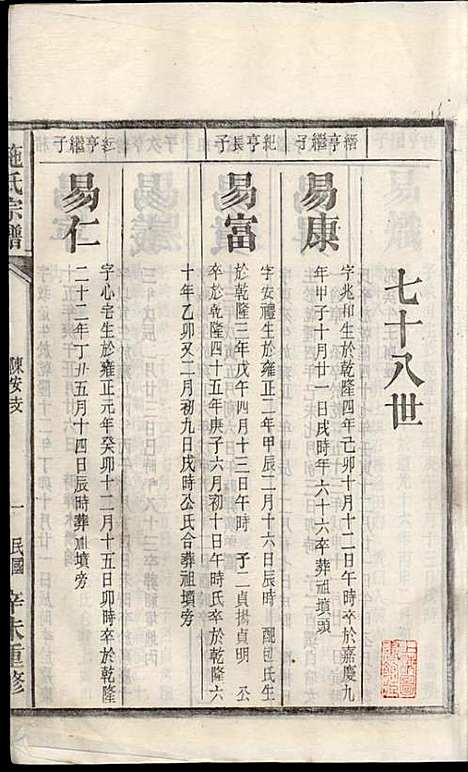 七十八世
縉亨繼子
易康
字兆和生於乾隆四年己卯十月十二日午時卒於嘉慶九
年甲子十月廿一日戌時年六十六卒葬祖墳頭
紀亨長子
易富
字安禮生於雍正二年甲辰二月十六日辰時 配包氏生
於乾隆三年戊午四月十三日午時 子二貞揚貞明 公
卒於乾隆四十五年庚子六月初十日午時氏卒於乾隆六
十年乙卯又二月初九日戌時公氏合葬祖墳旁
亨繼子
易仁
字心宅生於雍正元年癸卯十二月十五日卯時卒於乾隆
二十二年丁丑五月十四日辰時葬祖墳旁
施氏宗譜
陳安支
一
民國
辛未重修